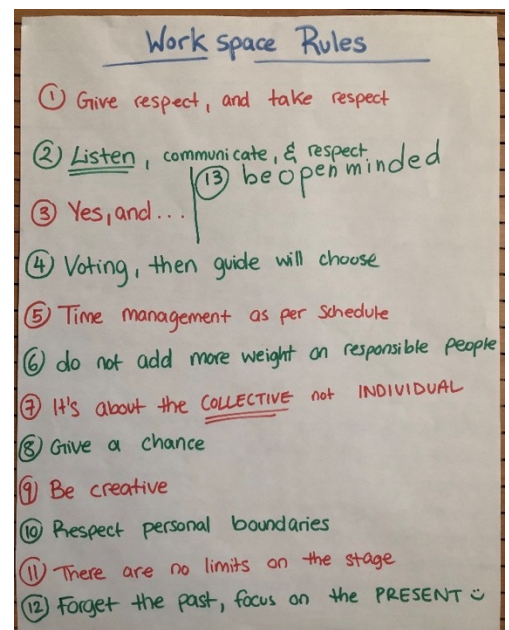 Work space Rules
① Give respect, and take respect
② Listen, communicate, & respect
⑬ be open minded
③ Yes, and...
④ Voting, then guide will choose
⑤ Time management as per schedule
⑥ do not add more weight on responsible people
⑦ It's about the COLLECTIVE not INDIVIDUAL
⑧ Give a chance
⑨ Be creative
⑩ Respect personal boundaries
⑪ There are no limits on the stage
⑫ Forget the past, focus on the PRESENT ☺